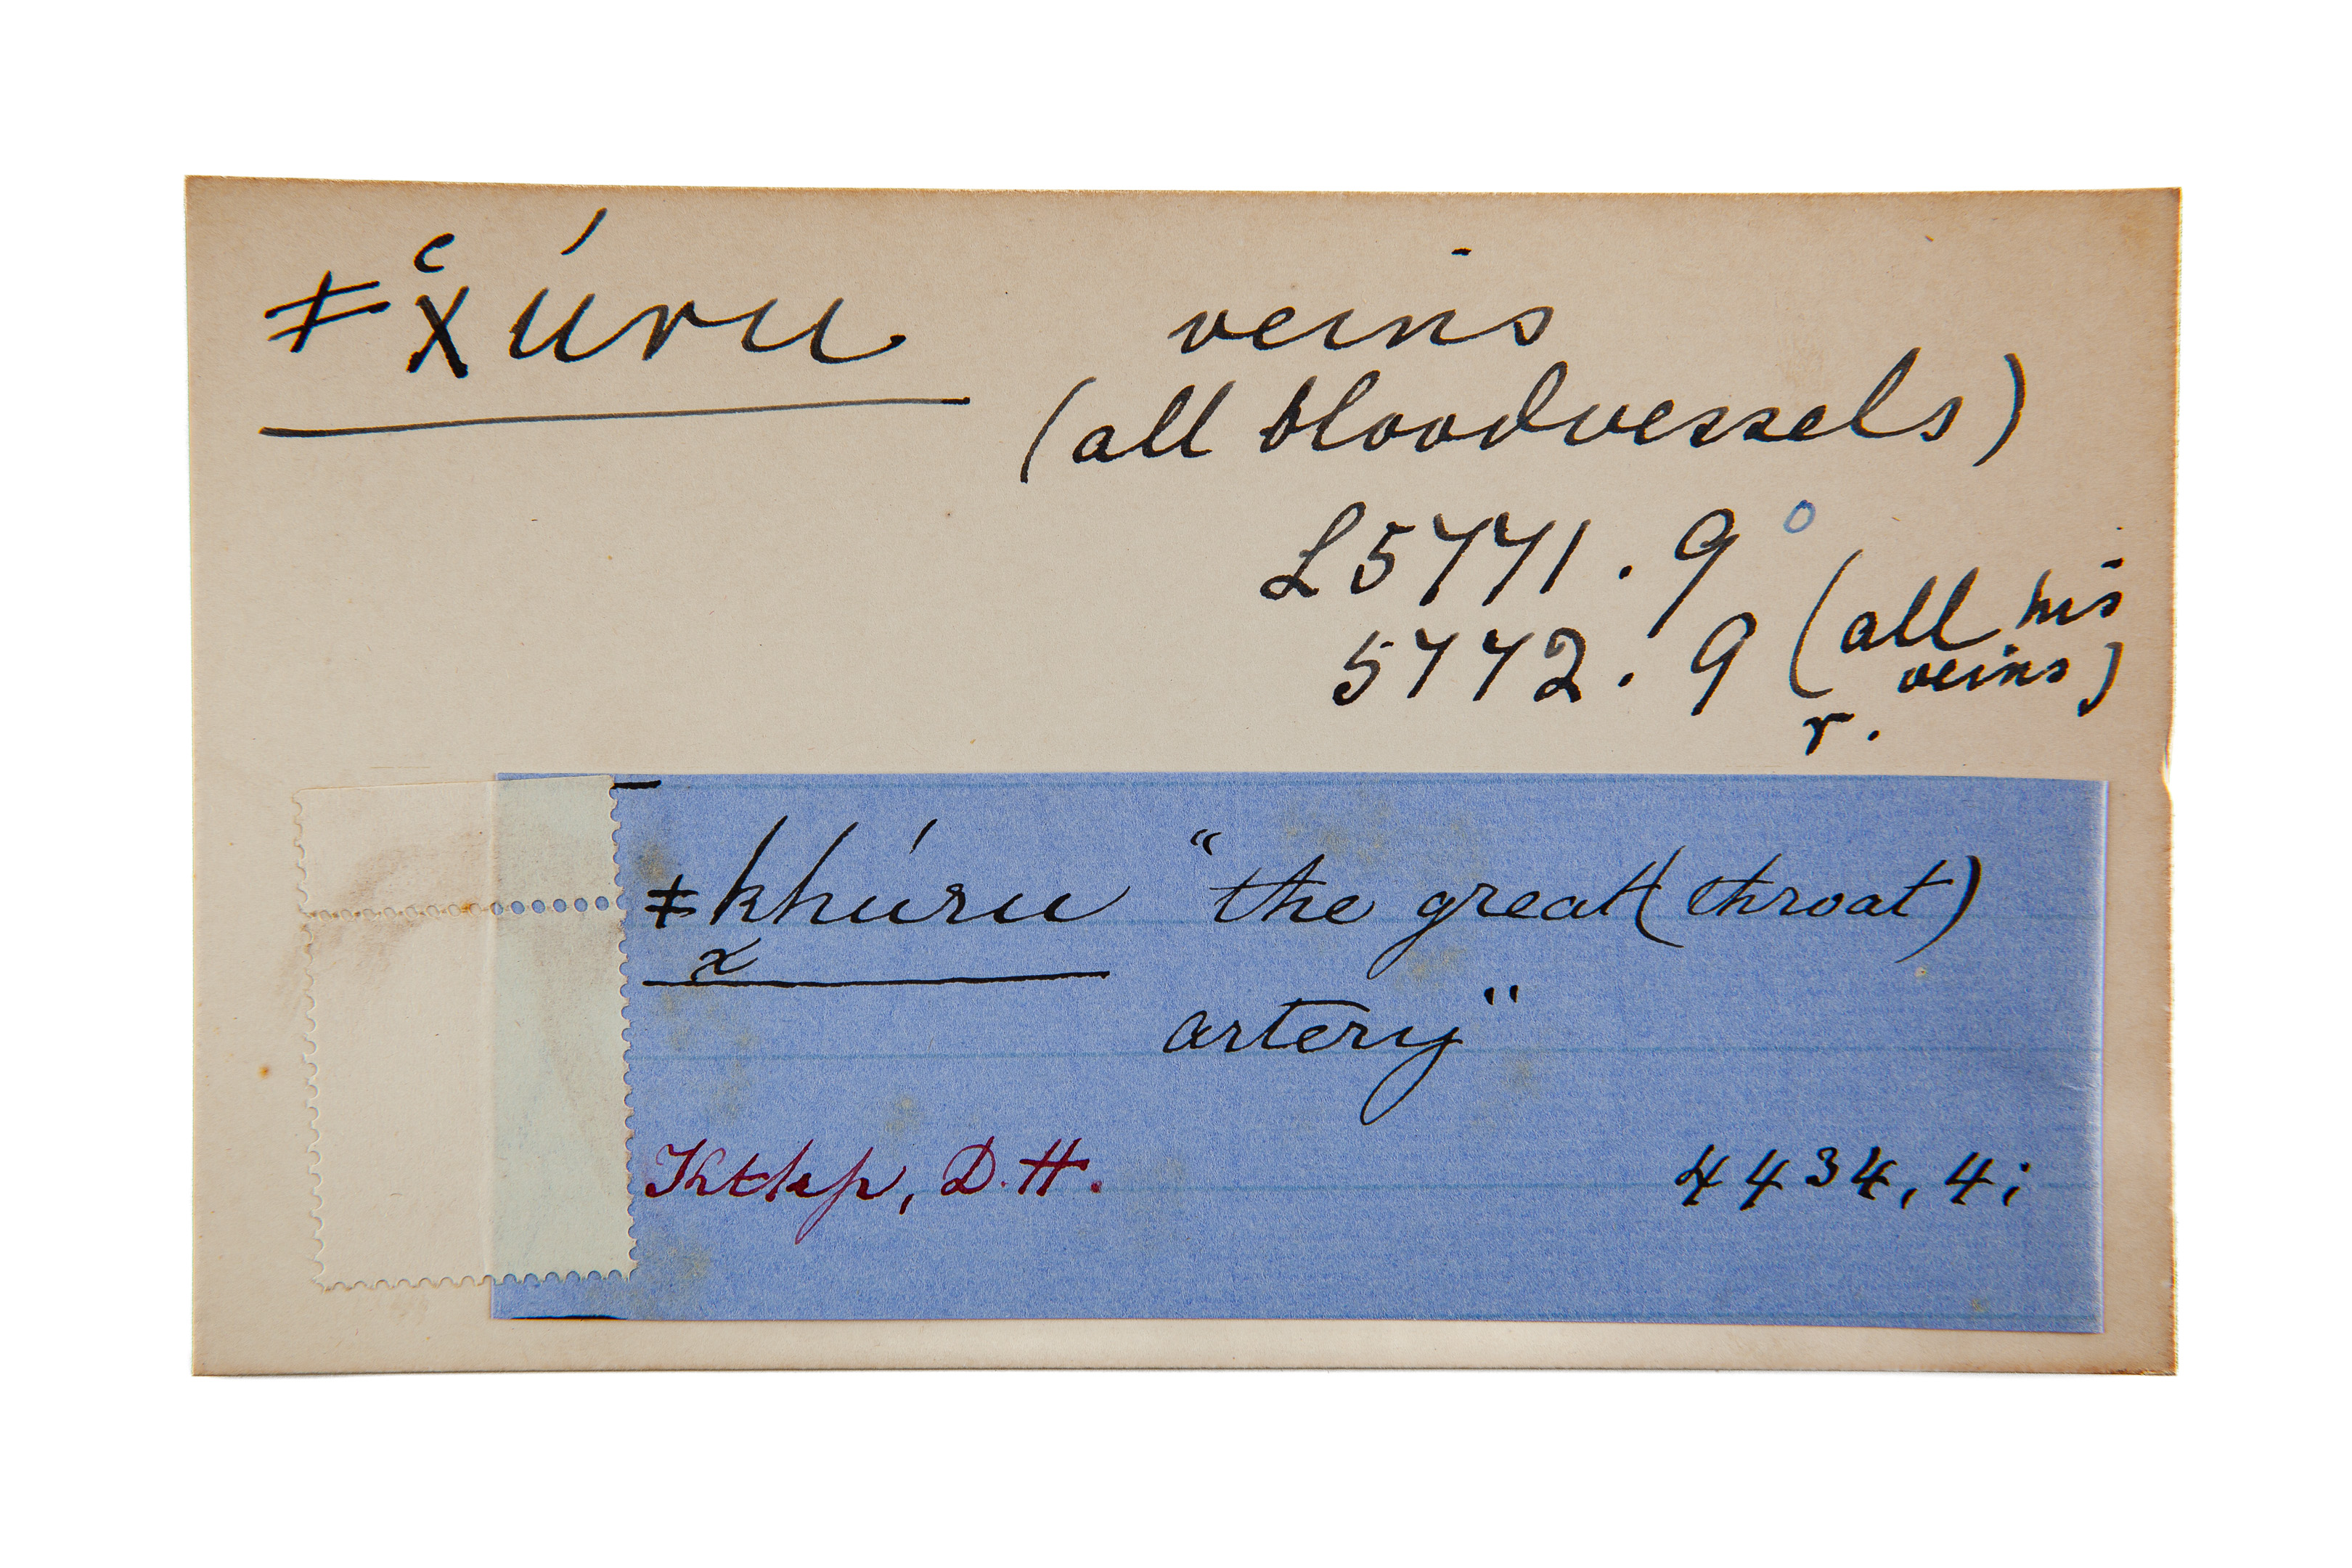 ǂx̔úru veins
(all bloodvessels)
L5771.9°
5772.9 (all his
veins)
r.
ǂkhúru "the great (throat)
x
artery"
Ktkp, D.H. 4434, 4;